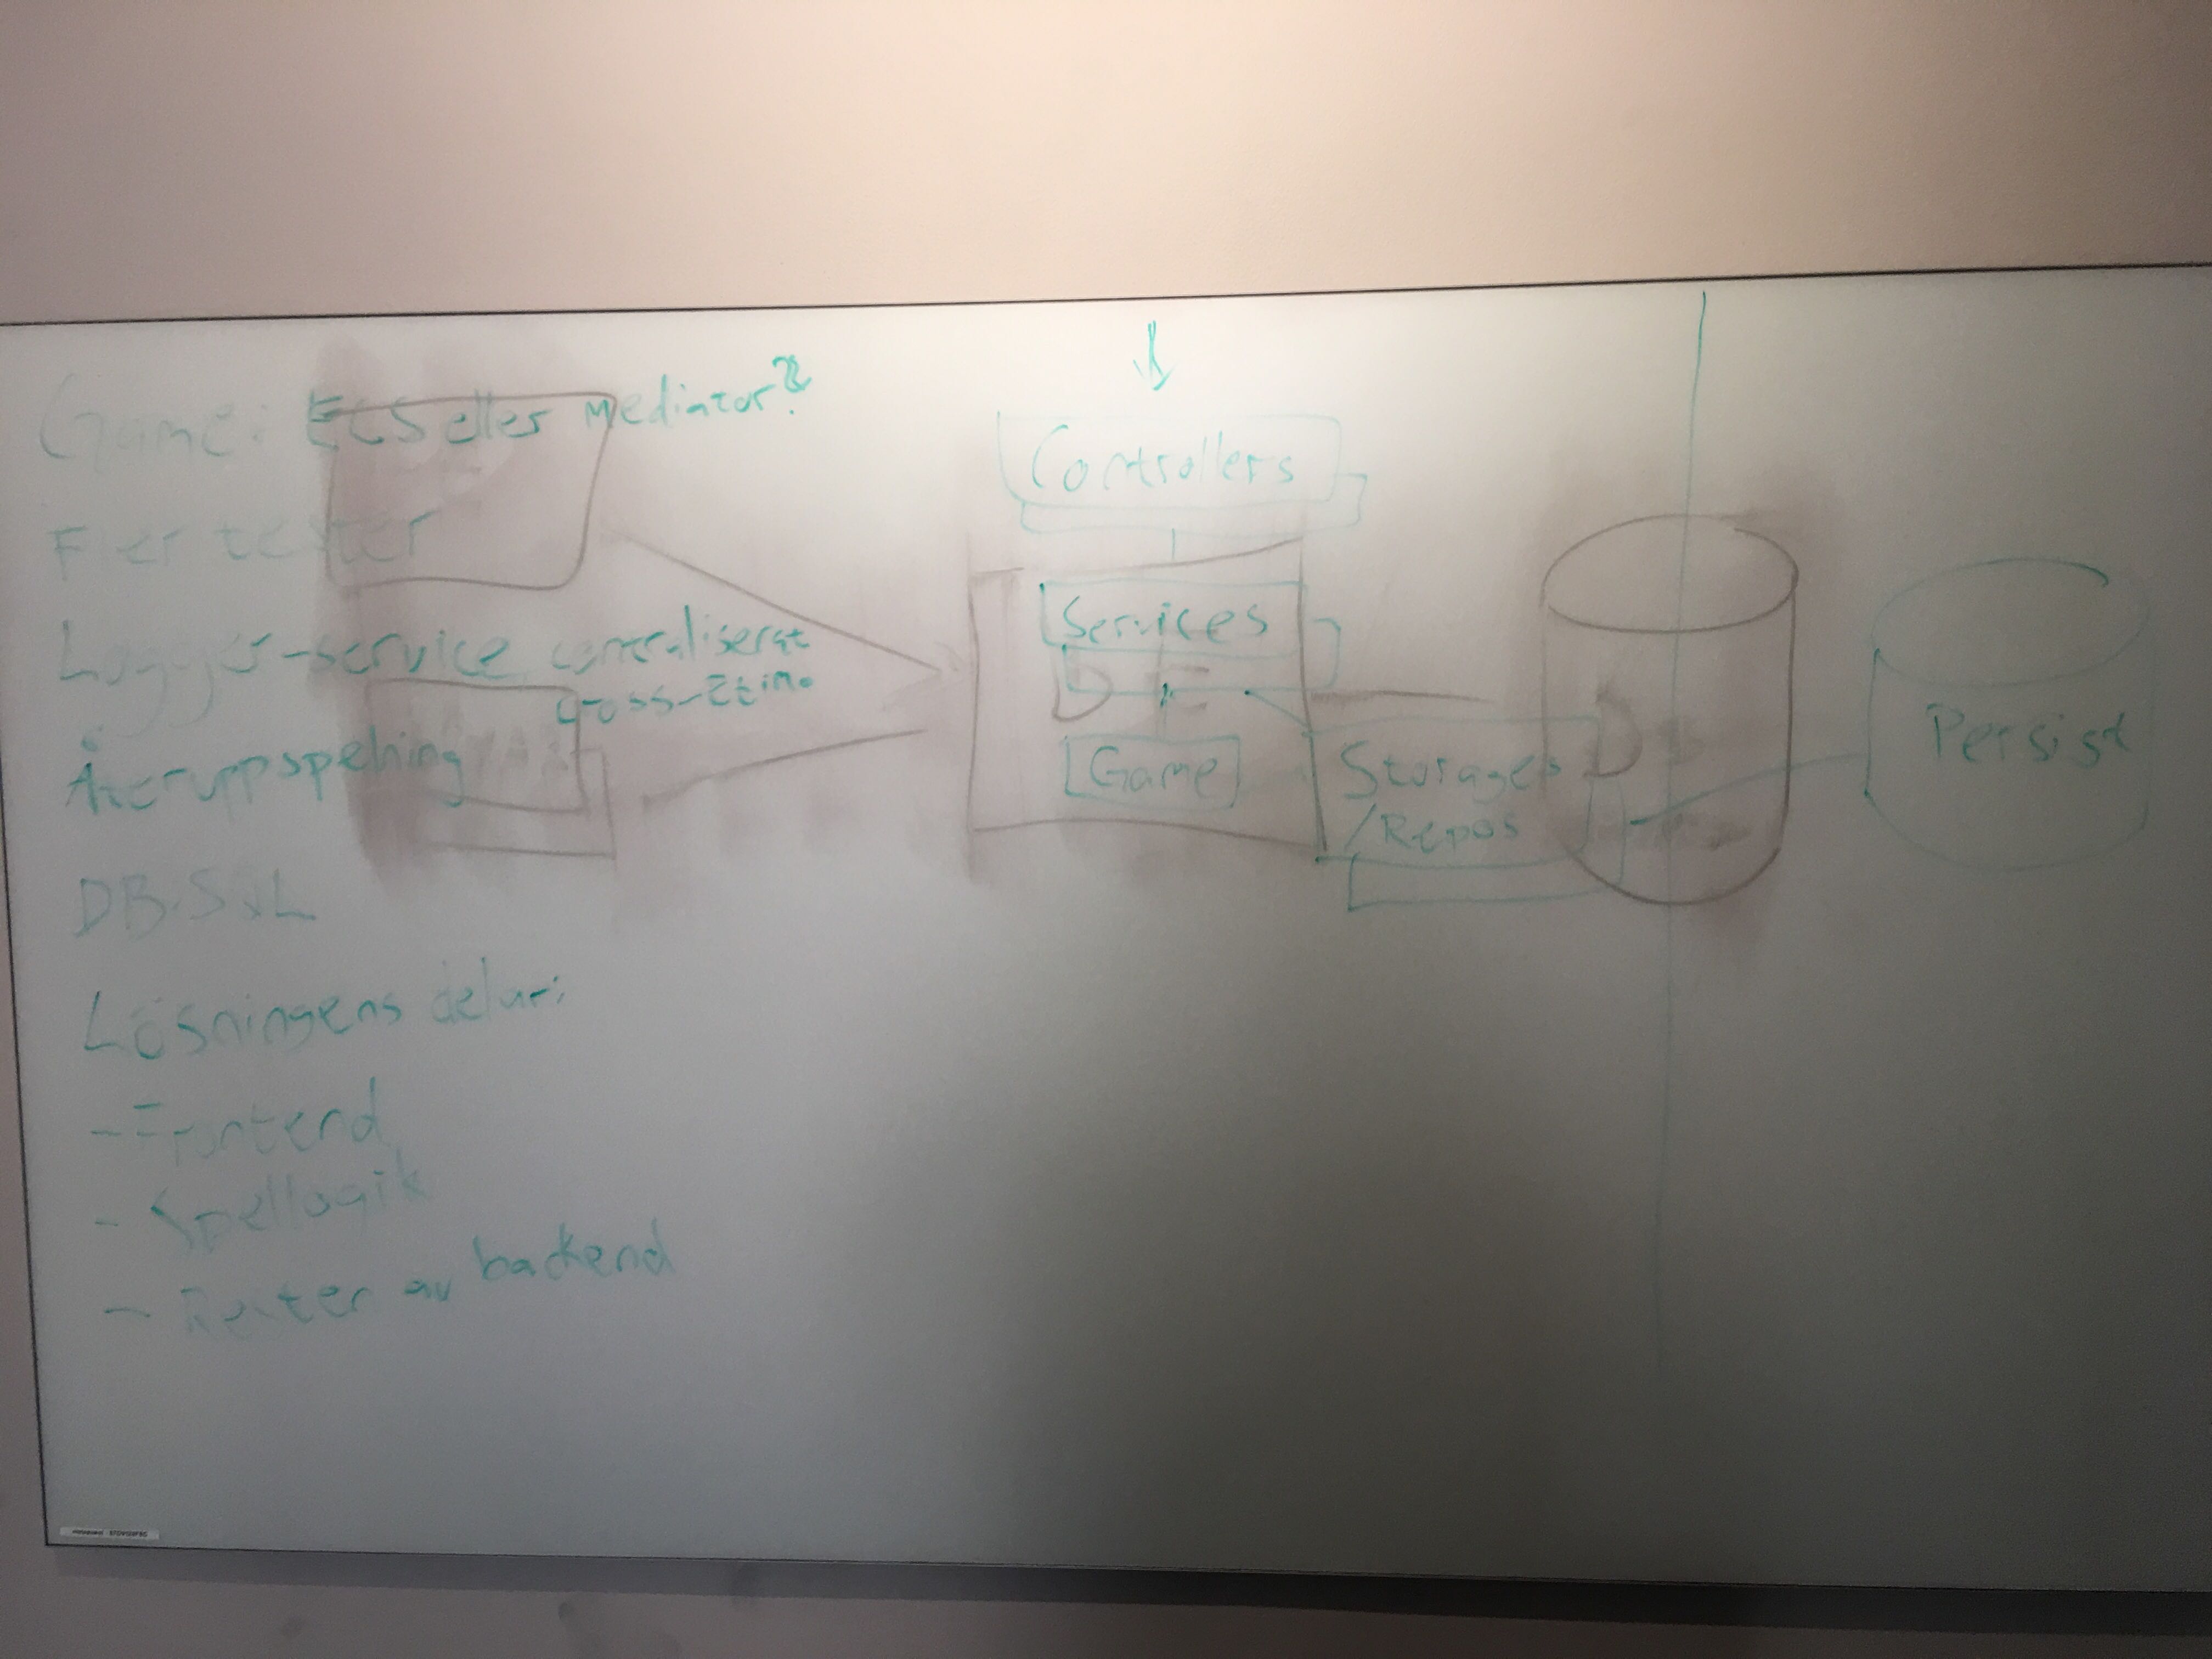 Game: ECS eller mediator?
Fler tester
Logger-service, centraliserat
Återuppspelning
DB-SQL
Lösningens delar:
- Frontend
- Spellogik
- Rester av backend
Controllers
Services
Game
Storages
/Repos
Persist